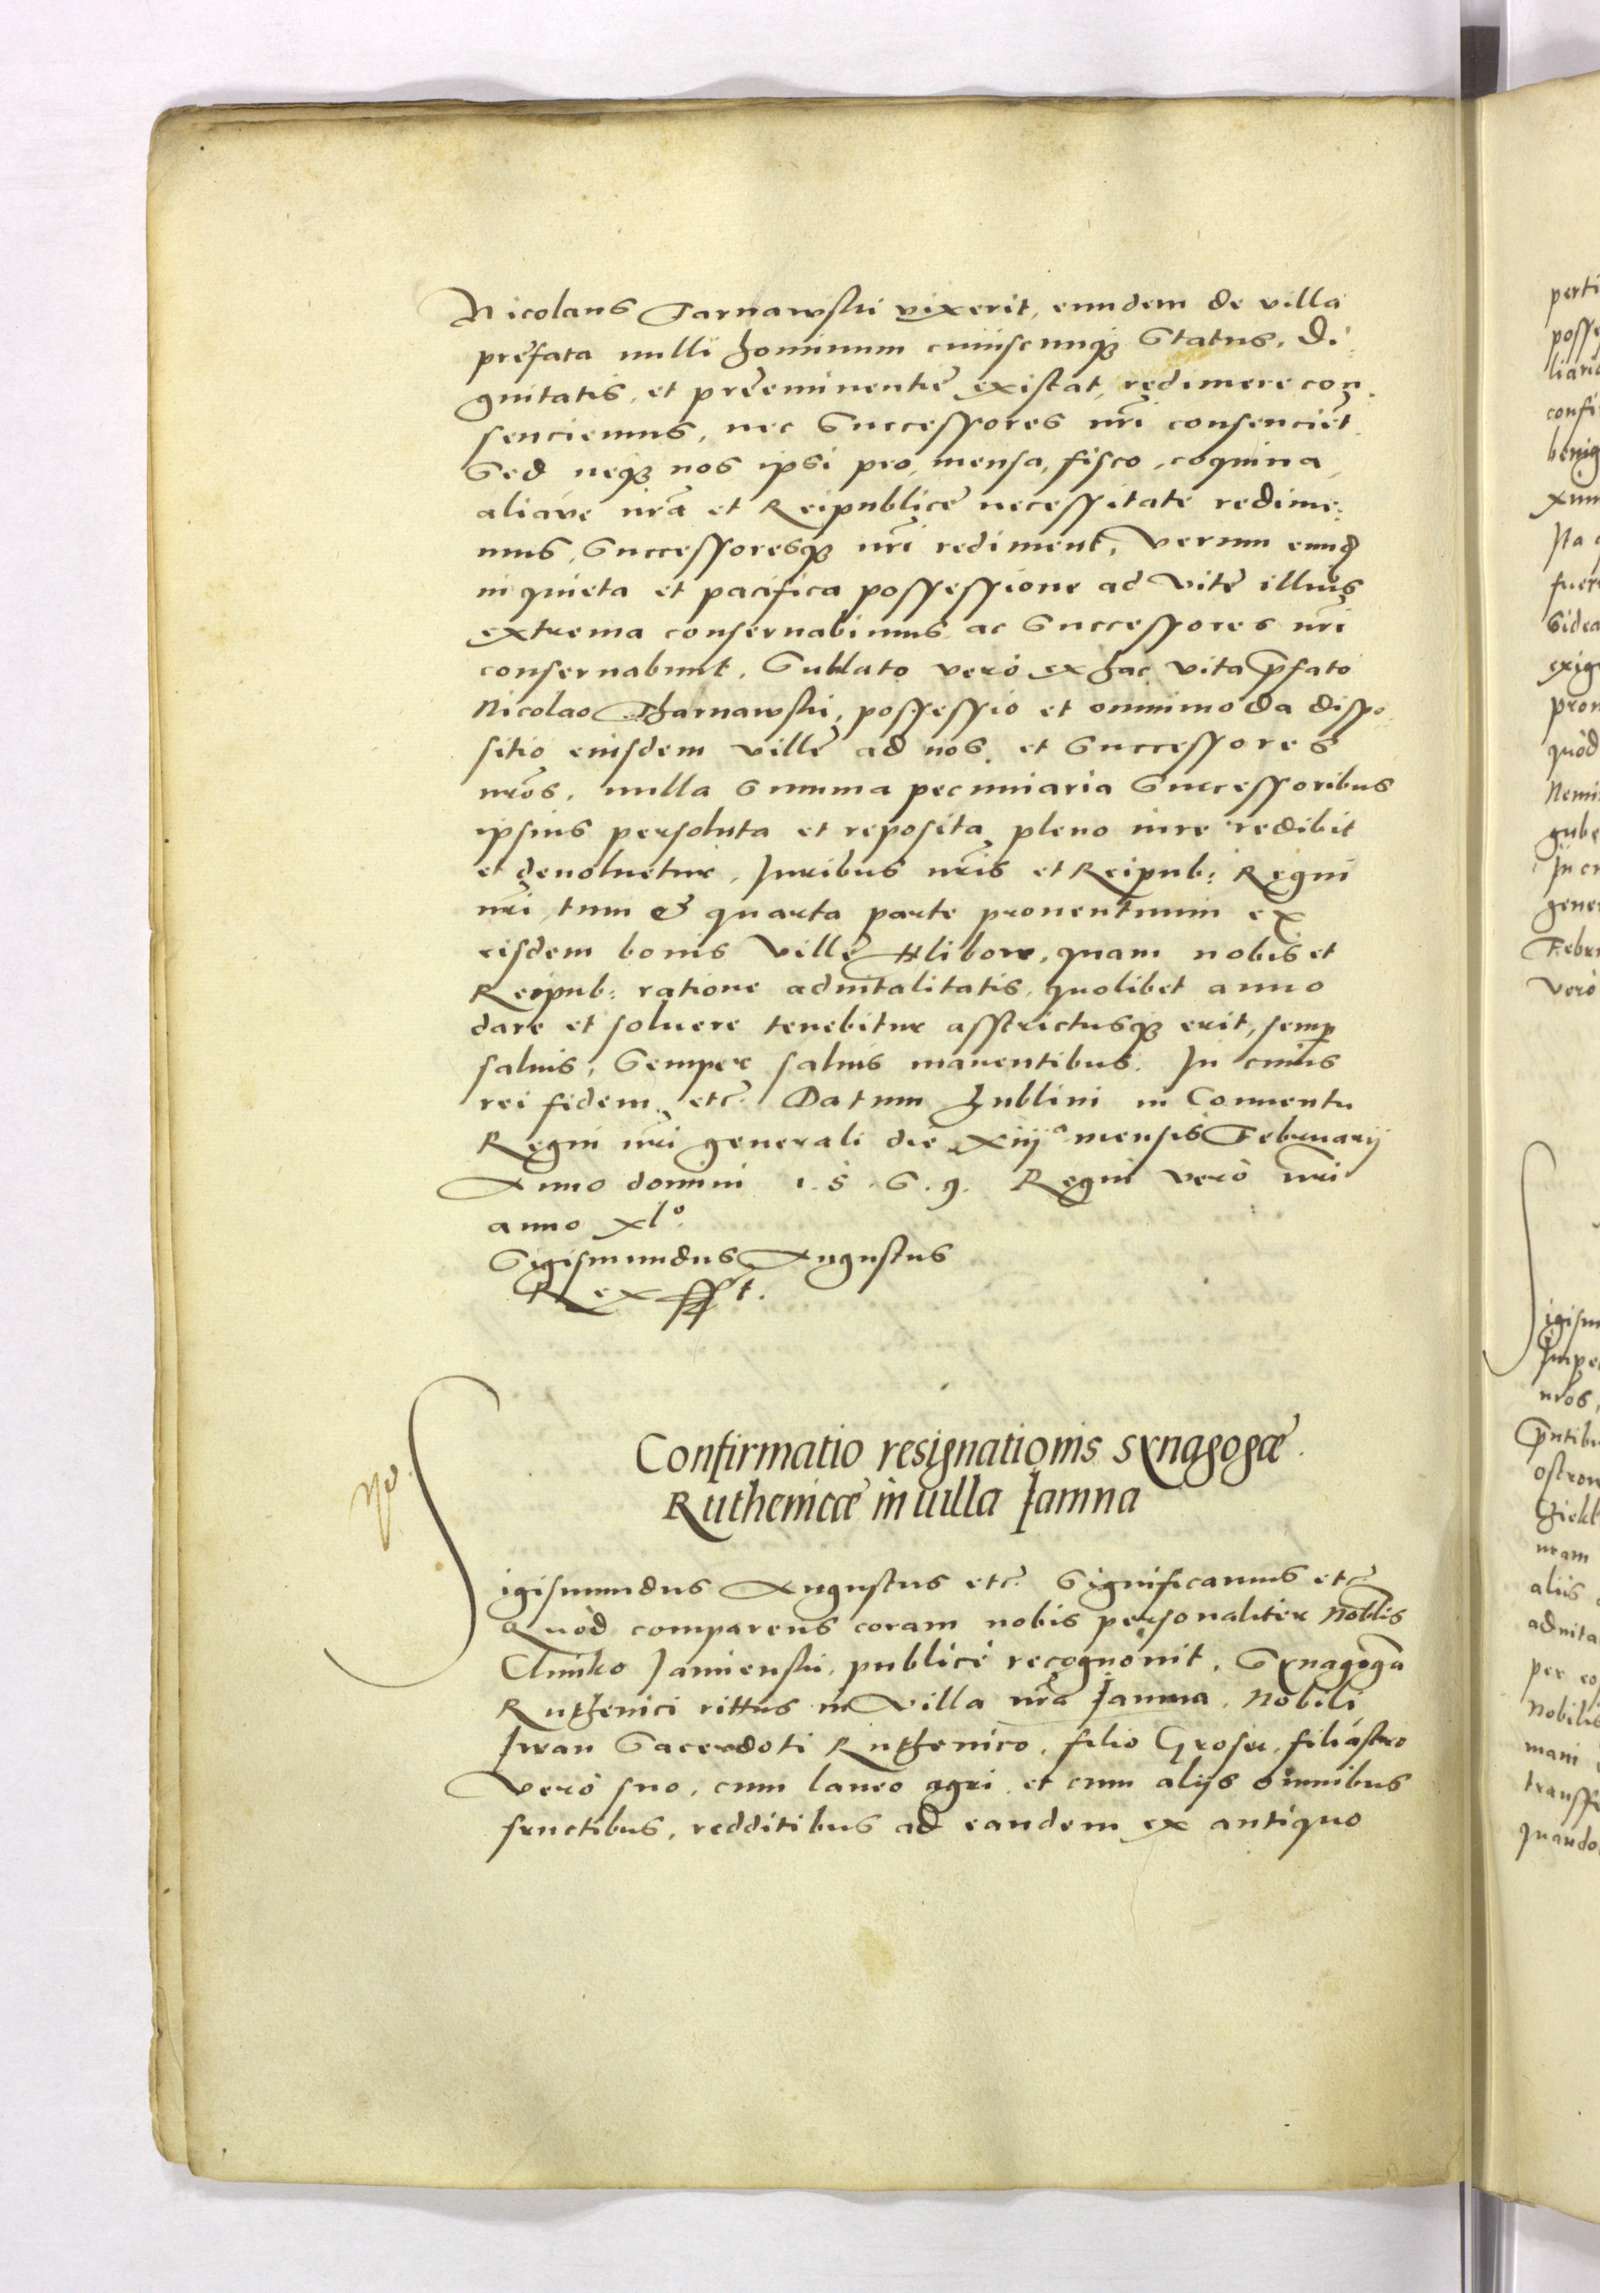 Nicolaus Tarnawski vixerit, eundem de villa
prefata nulli hominum cuiuscunq3 Status, Di:
gnitatis, et preeminentie existat, redimere con:
senciemus, nec Successores nri consencient.
Sed neq3 nos ipsi pro mensa, fisco, coquina,
aliave nra et Reipublice necessitate redime:
mus, Successoresq3 nri rediment, Verum eund
in quieta et pacifica possessione ad Vite illius
extrema conservabimus ac Successores nri
conservabunt. Sublato vero ex hac vita pfato
Nicolao Tharnawski, possessio et omnimoda dispo
sitio eiusdem ville ad nos, et Successores
nros, nulla Summa pecuniaria Successoribus
ipsius persoluta et reposita pleno iure redibit
et devolvetur, Iuribus nris et Reipub: Regni
nri, tum & quarta parte proventuum ex
eisdem bonis Ville Hlibow, quam nobis et
Reipub: ratione advitalitatis, quolibet anno
dare et solvere tenebitur asstrictusq3 erit, semp
salvis, Semper salvis manentibus. In cuius
rei fidem etc. Datum Lublini in Conventu
Regni nri generali die xiiij a mensis Februarij
Anno domini 1.5.6.9. Regni vero nri
anno xlo.
Sigismundus Augustus
Rex sst.
Confirmatio resignationis Synagogæ
Ruthenicæ in villa Jamna
Sigismundus Augustus etc. Significamus etc.
Quod comparens coram nobis personaliter Noblis
Jamienski, publicè recognovit, Synagoga
Ruthenici rittus in Villa nra Jamna, Nobili
Iwan Sacerdoti Ruthenico, filio filiastro
Vero suo, cum laneo agri et cum alijs omnibus
fructibus, redditibus ad eandem ex antiquo
perti
posse
confi
benig
fuer
exig
quod
gube
gener
Febru
Vero
igism
Impe
nros,
pntibu
nram
aliis
advita
per eos
Nobilis
transf
quando